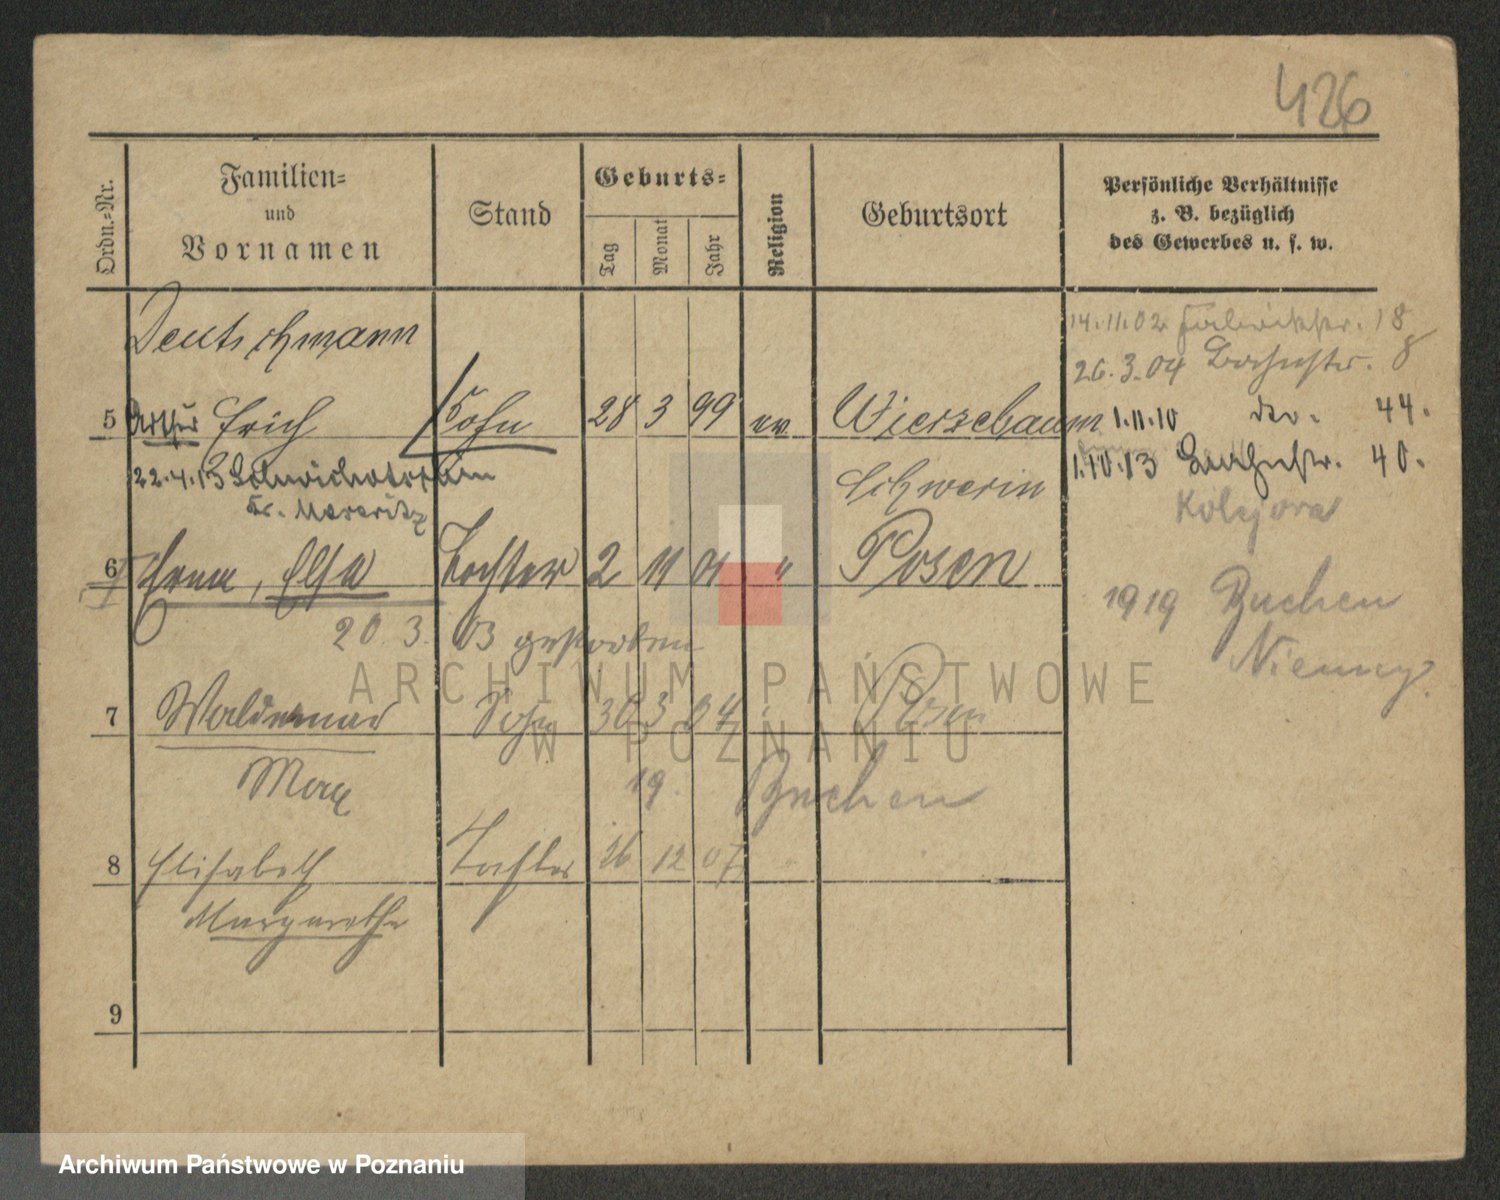 426
Ordn.-Nr.
Familien-
und
Vornamen
Stand
Geburts-
Tag
Monat
Jahr
Religion
Geburtsort
Persönliche Verhältnisse
z. B. bezüglich
des Gewerbes u. s. w.
Deutschmann
14.11.02 18
26.3.04 8
5 Arthur Erich Sohn 28 3 99 ev. Wierzebaum 1.11.10 do. 44.
22.4.13
Schwerin
1.10.13 40.
Kolejowa
6 Erna, Elsa Tochter 2 11 01 " Posen
1919 Buchen
Niemcy
20. 3. 03 gestorben
7 Waldemar Sohn 30 3 04 Posen
Max
19. Buchen
8 Elisabeth Tochter 26 12 07
Margarethe
9
ARCHIWUM PAŃSTWOWE
W POZNANIU
Archiwum Państwowe w Poznaniu